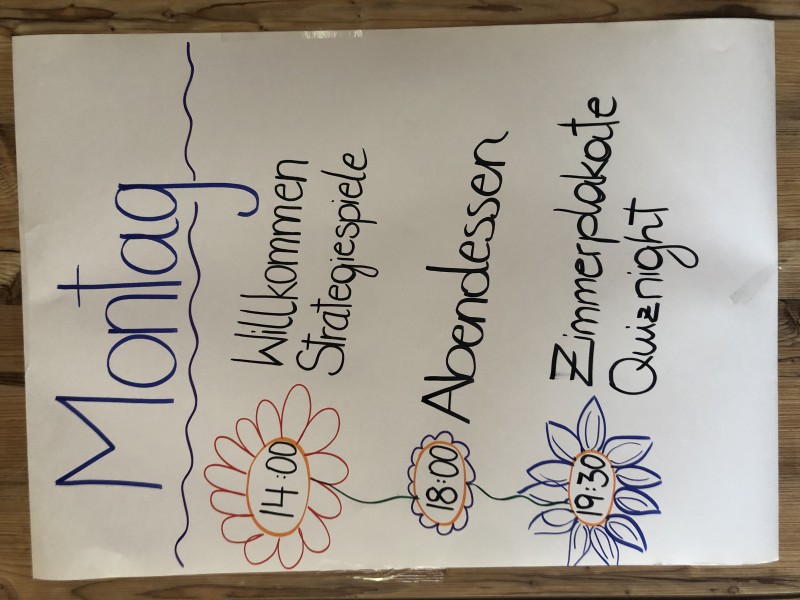 Montag
14:00
Willkommen
Strategiespiele
18:00
Abendessen
19:30
Zimmerplakate
Quiznight